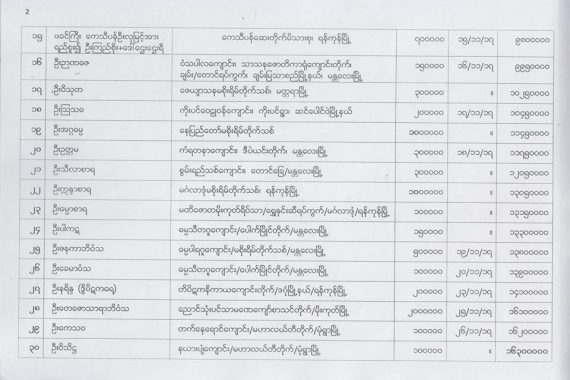 2
၁၅ ဖခင်ကြီး ကေသီပန်ဦးလှမြင့်အား ရည်စူး၍ ဦးကြည်စိုး+ဒေါ်ဌေးဌေးရီ ကေသီပန်ဆေးတိုက်မိသားစု၊ ရန်ကုန်မြို့ ၇၀၀၀၀၀ ၁၅/၁၁/၁၇ ၉၈၀၀၀၀၀
၁၆ ဦးဉာဏဓဇ ဝံသပါလကျောင်း၊ သာသနဇောတိကာရုံကျောင်းတိုက်၊ ချမ်း/တောင်ရပ်ကွက်၊ ချမ်းမြသာစည်မြို့နယ်၊ မန္တလေးမြို့ ၁၅၀၀၀၀ ၁၆/၁၁/၁၇ ၉၉၅၀၀၀၀
၁၇ ဦးဝိသုတ ဇေယျာသုနမစိုးရိမ်တိုက်သစ်၊ မတ္တရာမြို့ ၃၀၀၀၀၀ ။ ၁၀၂၅၀၀၀၀
၁၈ ဦးဩသဓ ကိုးပင်ဝေဠုဝန်ကျောင်း၊ ကိုးပင်ရွာ၊ ဆင်ပေါင်ဝဲမြို့နယ် ၂၀၀၀၀၀ ၁၇/၁၁/၁၇ ၁၀၄၅၀၀၀၀
၁၉ ဦးအဂ္ဂဓမ္မ နေပြည်တော်မစိုးရိမ်တိုက်သစ် ၁၀၀၀၀၀၀ ။ ၁၁၄၅၀၀၀၀
၂၀ ဦးဥတ္တမ ကံရတနာကျောင်း၊ ဒီပဲယင်းတိုက်၊ မန္တလေးမြို့ ၃၀၀၀၀၀ ၁၈/၁၁/၁၇ ၁၁၇၅၀၀၀၀
၂၁ ဦးသီလာစာရ စွမ်းရည်သစ်ကျောင်း၊ တောင်ခြေ/မန္တလေးမြို့ ၃၀၀၀၀၀ ။ ၁၂၀၅၀၀၀၀
၂၂ ဦးဣန္ဒာစာရ မင်္ဂလာဒုံမစိုးရိမ်တိုက်သစ်၊ ရန်ကုန်မြို့ ၁၀၀၀၀၀၀ ။ ၁၃၀၅၀၀၀၀
၂၃ ဦးဓမ္မာစာရ မဏိဇောတမိုးကုတ်ရိပ်သာ/ရွှေနှင်းဆီရပ်ကွက်/မင်္ဂလာဒုံ/ရန်ကုန်မြို့ ၁၀၀၀၀၀ ။ ၁၃၁၅၀၀၀၀
၂၄ ဦးပါကဋ ဓမ္မသီတဂူကျောင်း/ပေါက်မြိုင်တိုက်/မန္တလေးမြို့ ၁၅၀၀၀၀ ။ ၁၃၃၀၀၀၀၀
၂၅ ဦးဇနကာဘိဝံသ ဓမ္မပါရဂူကျောင်း/မစိုးရိမ်တိုက်သစ်/မန္တလေးမြို့ ၅၀၀၀၀၀ ၁၉/၁၁/၁၇ ၁၃၈၀၀၀၀၀
၂၆ ဦးခေမာဝံသ ဓမ္မသီတဂူကျောင်း/ပေါက်မြိုင်တိုက်/မန္တလေးမြို့ ၁၀၀၀၀၀ ၂၀/၁၁/၁၇ ၁၃၉၀၀၀၀၀
၂၇ ဦးနရိန္ဒ (ဒွိပိဋကဓရ) တိပိဋကနိကာယကျောင်းတိုက်/ဒဂုံမြို့နယ်/ရန်ကုန်မြို့ ၂၀၀၀၀၀ ၂၃/၁၁/၁၇ ၁၄၁၀၀၀၀၀
၂၈ ဦးတေဇောသာရာဘိဝံသ ညောင်သုံးပင်သာမဏေကျော်စာသင်တိုက်/မိုးကုတ်မြို့ ၂၀၀၀၀၀၀ ၂၅/၁၁/၁၇ ၁၆၁၀၀၀၀၀
၂၉ ဦးကေသဝ တက်နေရောင်ကျောင်း/မဟာလယ်တီတိုက်/မုံရွာမြို့ ၁၀၀၀၀၀ ၂၆/၁၁/၁၇ ၁၆၂၀၀၀၀၀
၃၀ ဦးဝိသိဋ္ဌ နယားပွဲကျောင်း/မဟာလယ်တီတိုက်/မုံရွာမြို့ ၁၀၀၀၀၀ ။ ၁၆၃၀၀၀၀၀